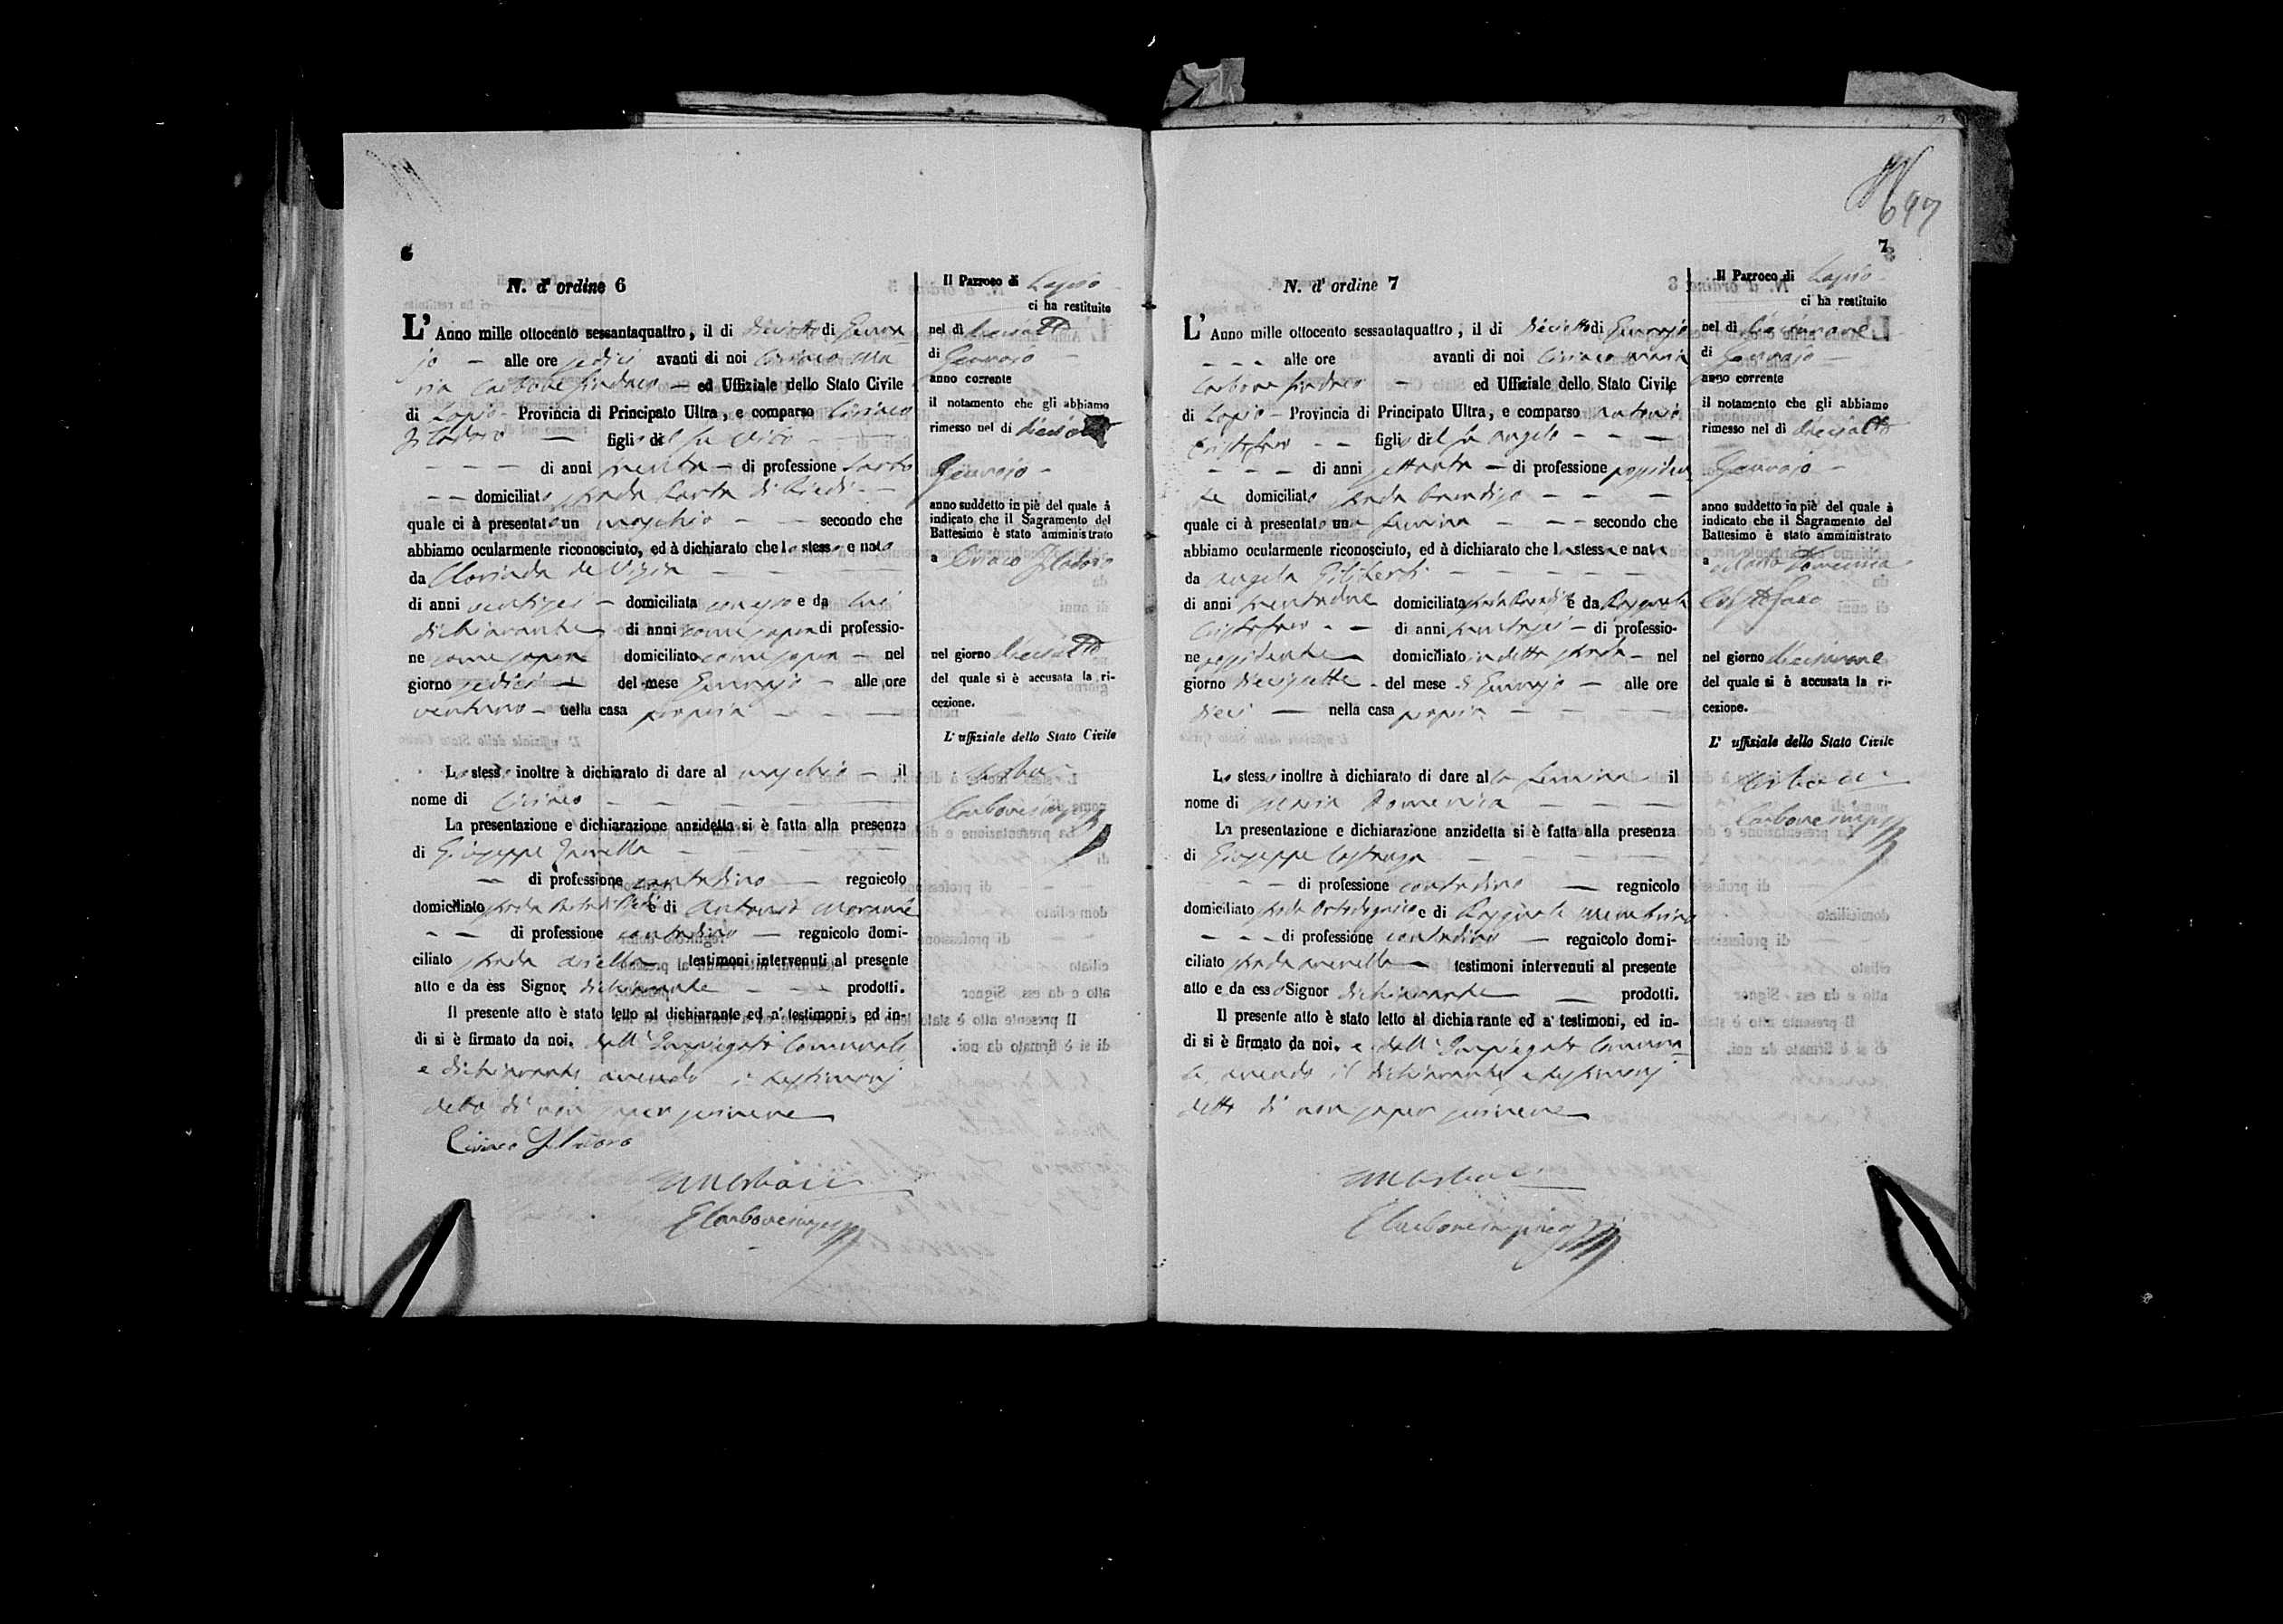 6
N. d' ordine 6
L' Anno mille ottocento sessantaquattro, il di dieciotto di Genna-
jo — alle ore sedici avanti di noi Ciriaco Ma
ria Carbone Sindaco — ed Uffiziale dello Stato Civile
di Lapio — Provincia di Principato Ultra, e comparso Ciriaco
figlio del fu
— — — di anni trenta — di professione Sarto
— — domiciliato strada Porta di Piedi — —
quale ci à presentato un maschio — — secondo che
abbiamo ocularmente riconosciuto, ed à dichiarato che lo stesso e nato
da Clorinda de — — —
di anni ventisei — domiciliata con esso e da lui
dichiarante di anni come sopra di professio-
ne come sopra domiciliato come sopra — nel
giorno sedici — del mese Gennajo — alle ore
ventuno — nella casa propria — — —
Lo stesso inoltre à dichiarato di dare al maschio — il
nome di Ciriaco — — — —
La presentazione e dichiarazione anzidetta si è fatta alla presenza
di Giuseppe — — —
— di professione contadino — regnicolo
domiciliato strada e di Antonio
— — di professione contadino — regnicolo domi-
ciliato strada testimoni intervenuti al presente
atto e da ess Signor dichiarante — — prodotti.
Il presente atto è stato letto al dichiarante ed a' testimoni, ed in-
di si è firmato da noi, dall' Impiegato Comunale
e dichiarante avendo i testimonj
detto di non saper scrivere
Ciriaco
Il Parroco di Lapio
ci ha restituito
nel di dieciotto
di Gennajo —
anno corrente
il notamento che gli abbiamo
rimesso nel di dieciotto
Gennajo —
anno suddetto in piè del quale à
indicato che il Sagramento del
Battesimo è stato amministrato
a Ciriaco
nel giorno dieciotto
del quale si è accusata la ri-
cezione.
L' uffiziale dello Stato Civile
697
7
N. d' ordine 7
L' Anno mille ottocento sessantaquattro, il di dieciotto di Gennajo
— — — alle ore avanti di noi Ciriaco Maria
Carbone Sindaco — ed Uffiziale dello Stato Civile
di Lapio — Provincia di Principato Ultra, e comparso Antonio
Cristofaro — — figlio del fu Angelo — — —
— — — di anni settanta — di professione possiden
te domiciliato strada Paradiso — — —
quale ci à presentato una femina — — — secondo che
abbiamo ocularmente riconosciuto, ed à dichiarato che la stessa e nata
da Angela Giliberti — — — —
di anni trentadue domiciliata strada Paradiso e da Pasquale
Cristofaro — — di anni trentasei — di professio-
ne possidente domiciliato in detta strada — nel
giorno diecisette — del mese di Gennajo — alle ore
dieci — nella casa propria — — —
Lo stesso inoltre à dichiarato di dare alla femina il
nome di Maria Domenica — — —
La presentazione e dichiarazione anzidetta si è fatta alla presenza
di Giuseppe — — —
— — — di professione contadino — regnicolo
domiciliato strada e di Pasquale
— — — di professione contadino — regnicolo domi-
ciliato strada — testimoni intervenuti al presente
atto e da esso Signor dichiarante — prodotti.
Il presente atto è stato letto al dichiarante ed a' testimoni, ed in-
di si è firmato da noi, e dall' Impiegato Comuna-
le, avendo il dichiarante, e testimonj
detto di non saper scrivere
Il Parroco di Lapio
ci ha restituito
nel di diecinnove
di Gennajo —
anno corrente
il notamento che gli abbiamo
rimesso nel di dieciotto
Gennajo —
anno suddetto in piè del quale à
indicato che il Sagramento del
Battesimo è stato amministrato
a Maria Domenica
Cristofaro —
nel giorno diecinnove
del quale si è accusata la ri-
cezione.
L' uffiziale dello Stato Civile